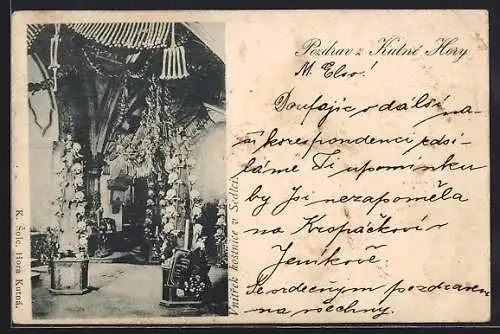 Pozdrav z Kutné Hory
M. Elso!
Doufajíc v dálší na-
ší korespondenci zasí-
láme Ti upomínku
by Jsi nezapoměla
na Kropáčkoví v
Jeníkově.
Se srdečným pozdravem
na všechny.
Vnitřek kostnice v Sedlci.
K. Šolc, Hora Kutná.